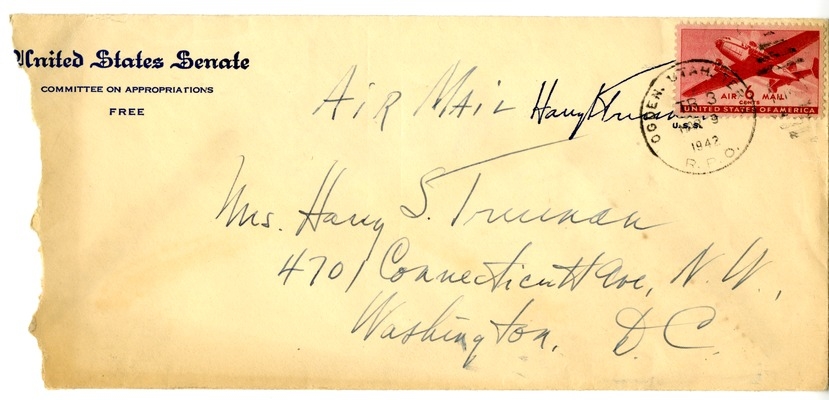 United States Senate
COMMITTEE ON APPROPRIATIONS
FREE
AIR MAIL Harry S Truman
U.S.S.
AIR MAIL
6 CENTS
UNITED STATES OF AMERICA
OGDEN, UTAH
TR 3
1942
R.P.O.
Mrs. Harry S. Truman
4701 Connecticutt Ave, N.W.,
Washington, D.C.